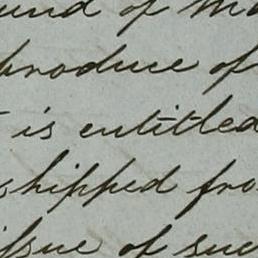 und of Ma
produce of
is entitled
shipped fro
issue of suc